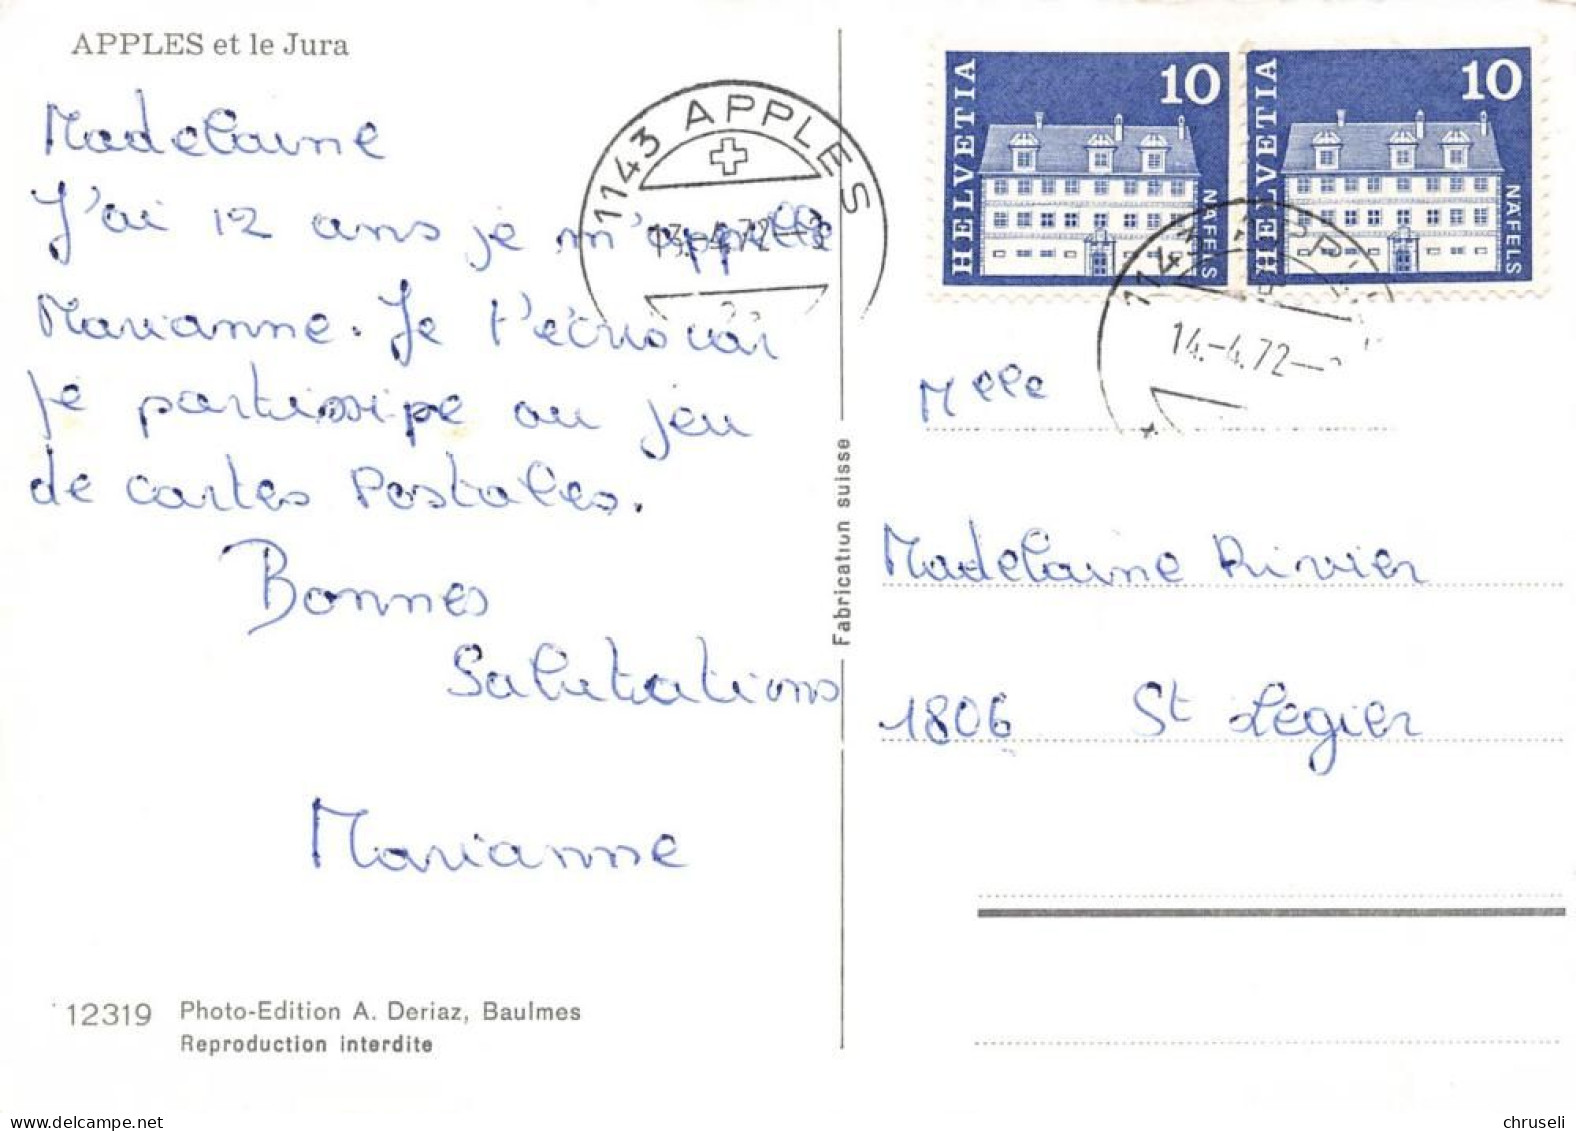 APPLES et le Jura
Madelaine
J'ai 12 ans je m'appelle
Marianne. Je t'écris car
je partissipe au jeu
de cartes Postales.
Bonnes
Salutations
Marianne
12319 Photo-Edition A. Deriaz, Baulmes
Reproduction interdite
Fabrication suisse
1143 APPLES
13.-4.72
HELVETIA 10 NÄFELS
HELVETIA 10 NÄFELS
1143
14.-4.72
Melle
Madelaine Rivier
1806 St Légier
chruseli